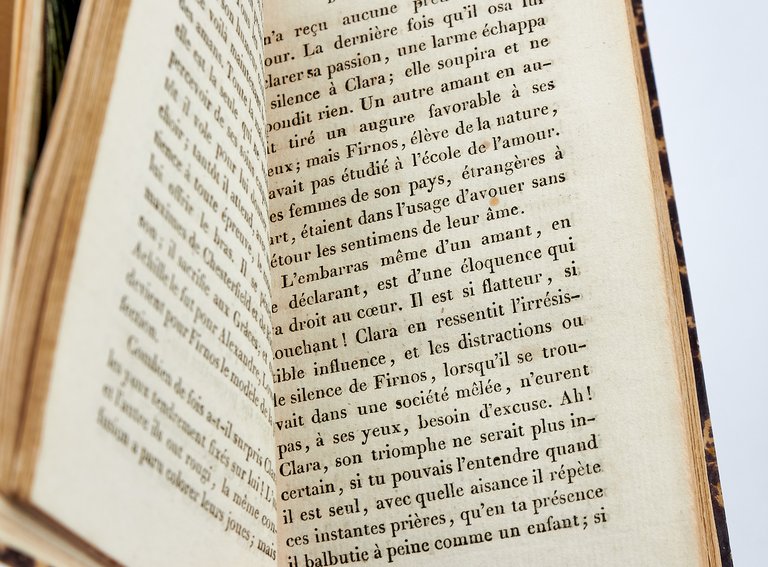 voilà
elle est la seule qui
percevoir de ses
Il vole pour lui
choisir; tantôt il attend
tience à toute épreuve,
lui offrir le bras. Il se
maximes de Chesterfield et de
son; il sacrifie aux Grâces, et
Achille le fut pour Alexandre,
devient pour Firnos le modèle de
fection.
Combien de fois a-t-il surpris
les yeux tendrement fixés sur lui!
et l'autre ils ont rougi, la même con-
fusion a paru colorer leurs joues; mais
n'a reçu aucune
our. La dernière fois qu'il osa lui
clarer sa passion, une larme échappa
silence à Clara; elle soupira et ne
pondit rien. Un autre amant en au-
it tiré un augure favorable à ses
eux; mais Firnos, élève de la nature,
avait pas étudié à l'école de l'amour.
es femmes de son pays, étrangères à
art, étaient dans l'usage d'avouer sans
étour les sentimens de leur âme.
L'embarras même d'un amant, en
e déclarant, est d'une éloquence qui
a droit au cœur. Il est si flatteur, si
ouchant! Clara en ressentit l'irrésis-
ible influence, et les distractions ou
le silence de Firnos, lorsqu'il se trou-
vait dans une société mêlée, n'eurent
pas, à ses yeux, besoin d'excuse. Ah!
Clara, son triomphe ne serait plus in-
certain, si tu pouvais l'entendre quand
il est seul, avec quelle aisance il répète
ces instantes prières, qu'en ta présence
il balbutie à peine comme un enfant; si